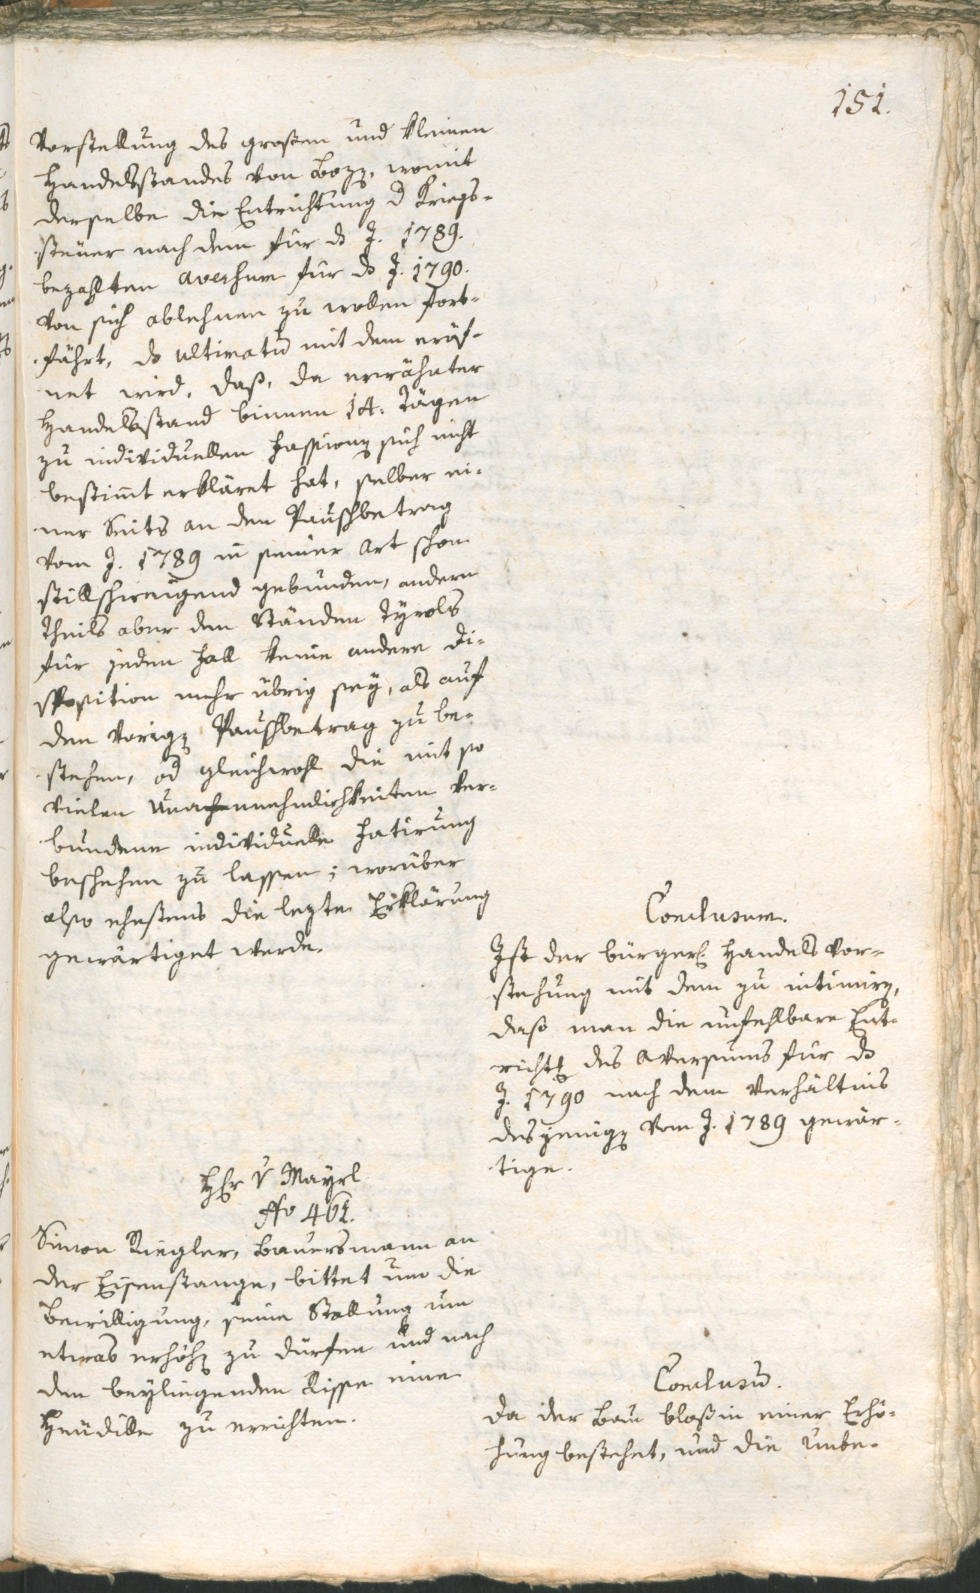 151.
Vorstellung des großen und kleinen
Handelsstandes von Boz, womit
derselbe die Entrichtung d Kriegs-
steuer nach dem für ds J. 1789.
bezahlten Aversum für ds J. 1790.
von sich ablehnen zu wollen fort-
fährt, ds ultimatū mit dem eröf-
net wird, daß, da erwähnter
Handelsstand binnen 14. Tägen
zu individuellen Fassionen sich nicht
bestim̄t erkläret hat, selber ei-
ner Seits an den Pauschbetrag
vom J. 1789 in seiner Art schon
stillschweigend gebunden, andern
Theils aber den Ständen Tyrols
für jeden Fall keine andere Di-
sposition mehr übrig sey, als auf
den vorigen Pauschbetrag zu be-
stehen, od gleichwohl die mit so
vielen Unannehmlichkeiten ver-
bundene individuelle Fatirung
beschehen zu lassen; worüber
also ehestens die lezte Erklärung
gewärtiget werde.
Conclusum.
Ist der bürgerl. Handels Vor-
stehung mit dem zu intimiren,
daß man die unfehlbare Ent-
richtg des Aversums für ds
J. 1790 nach dem Verhältnis
desjenigen vom J. 1789 gewär-
tige.
Hr v Mayrl
No 461.
Simon Riegler, Bauersmann an
der Eisenstange, bittet um die
Bewilligung, seine Stallung um
etwas erhöhen zu dürfen und nach
dem beyliegenden Risse eine
Heüdille zu errichten.
Conclusū.
Da der Bau bloß in einer Erhö-
hung bestehet, und die Umbe-